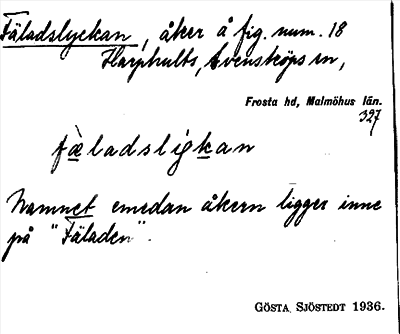 Fäladslyckan, åker å fig. num. 18
Harphults, Svensköps sn,
Frosta hd, Malmöhus län.
327
fæladsligkan
Namnet emedan åkern ligger inne
på "Fäladen".
GÖSTA SJÖSTEDT 1936.